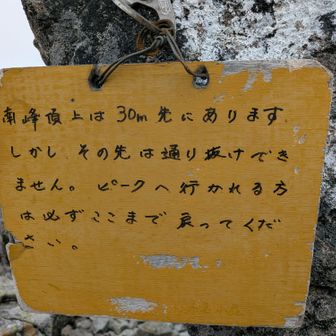 南峰頂上は30m先にあります
しかし その先は通り抜けでき
ません。ピークへ行かれる方
は必ずここまで戻ってくだ
さい。